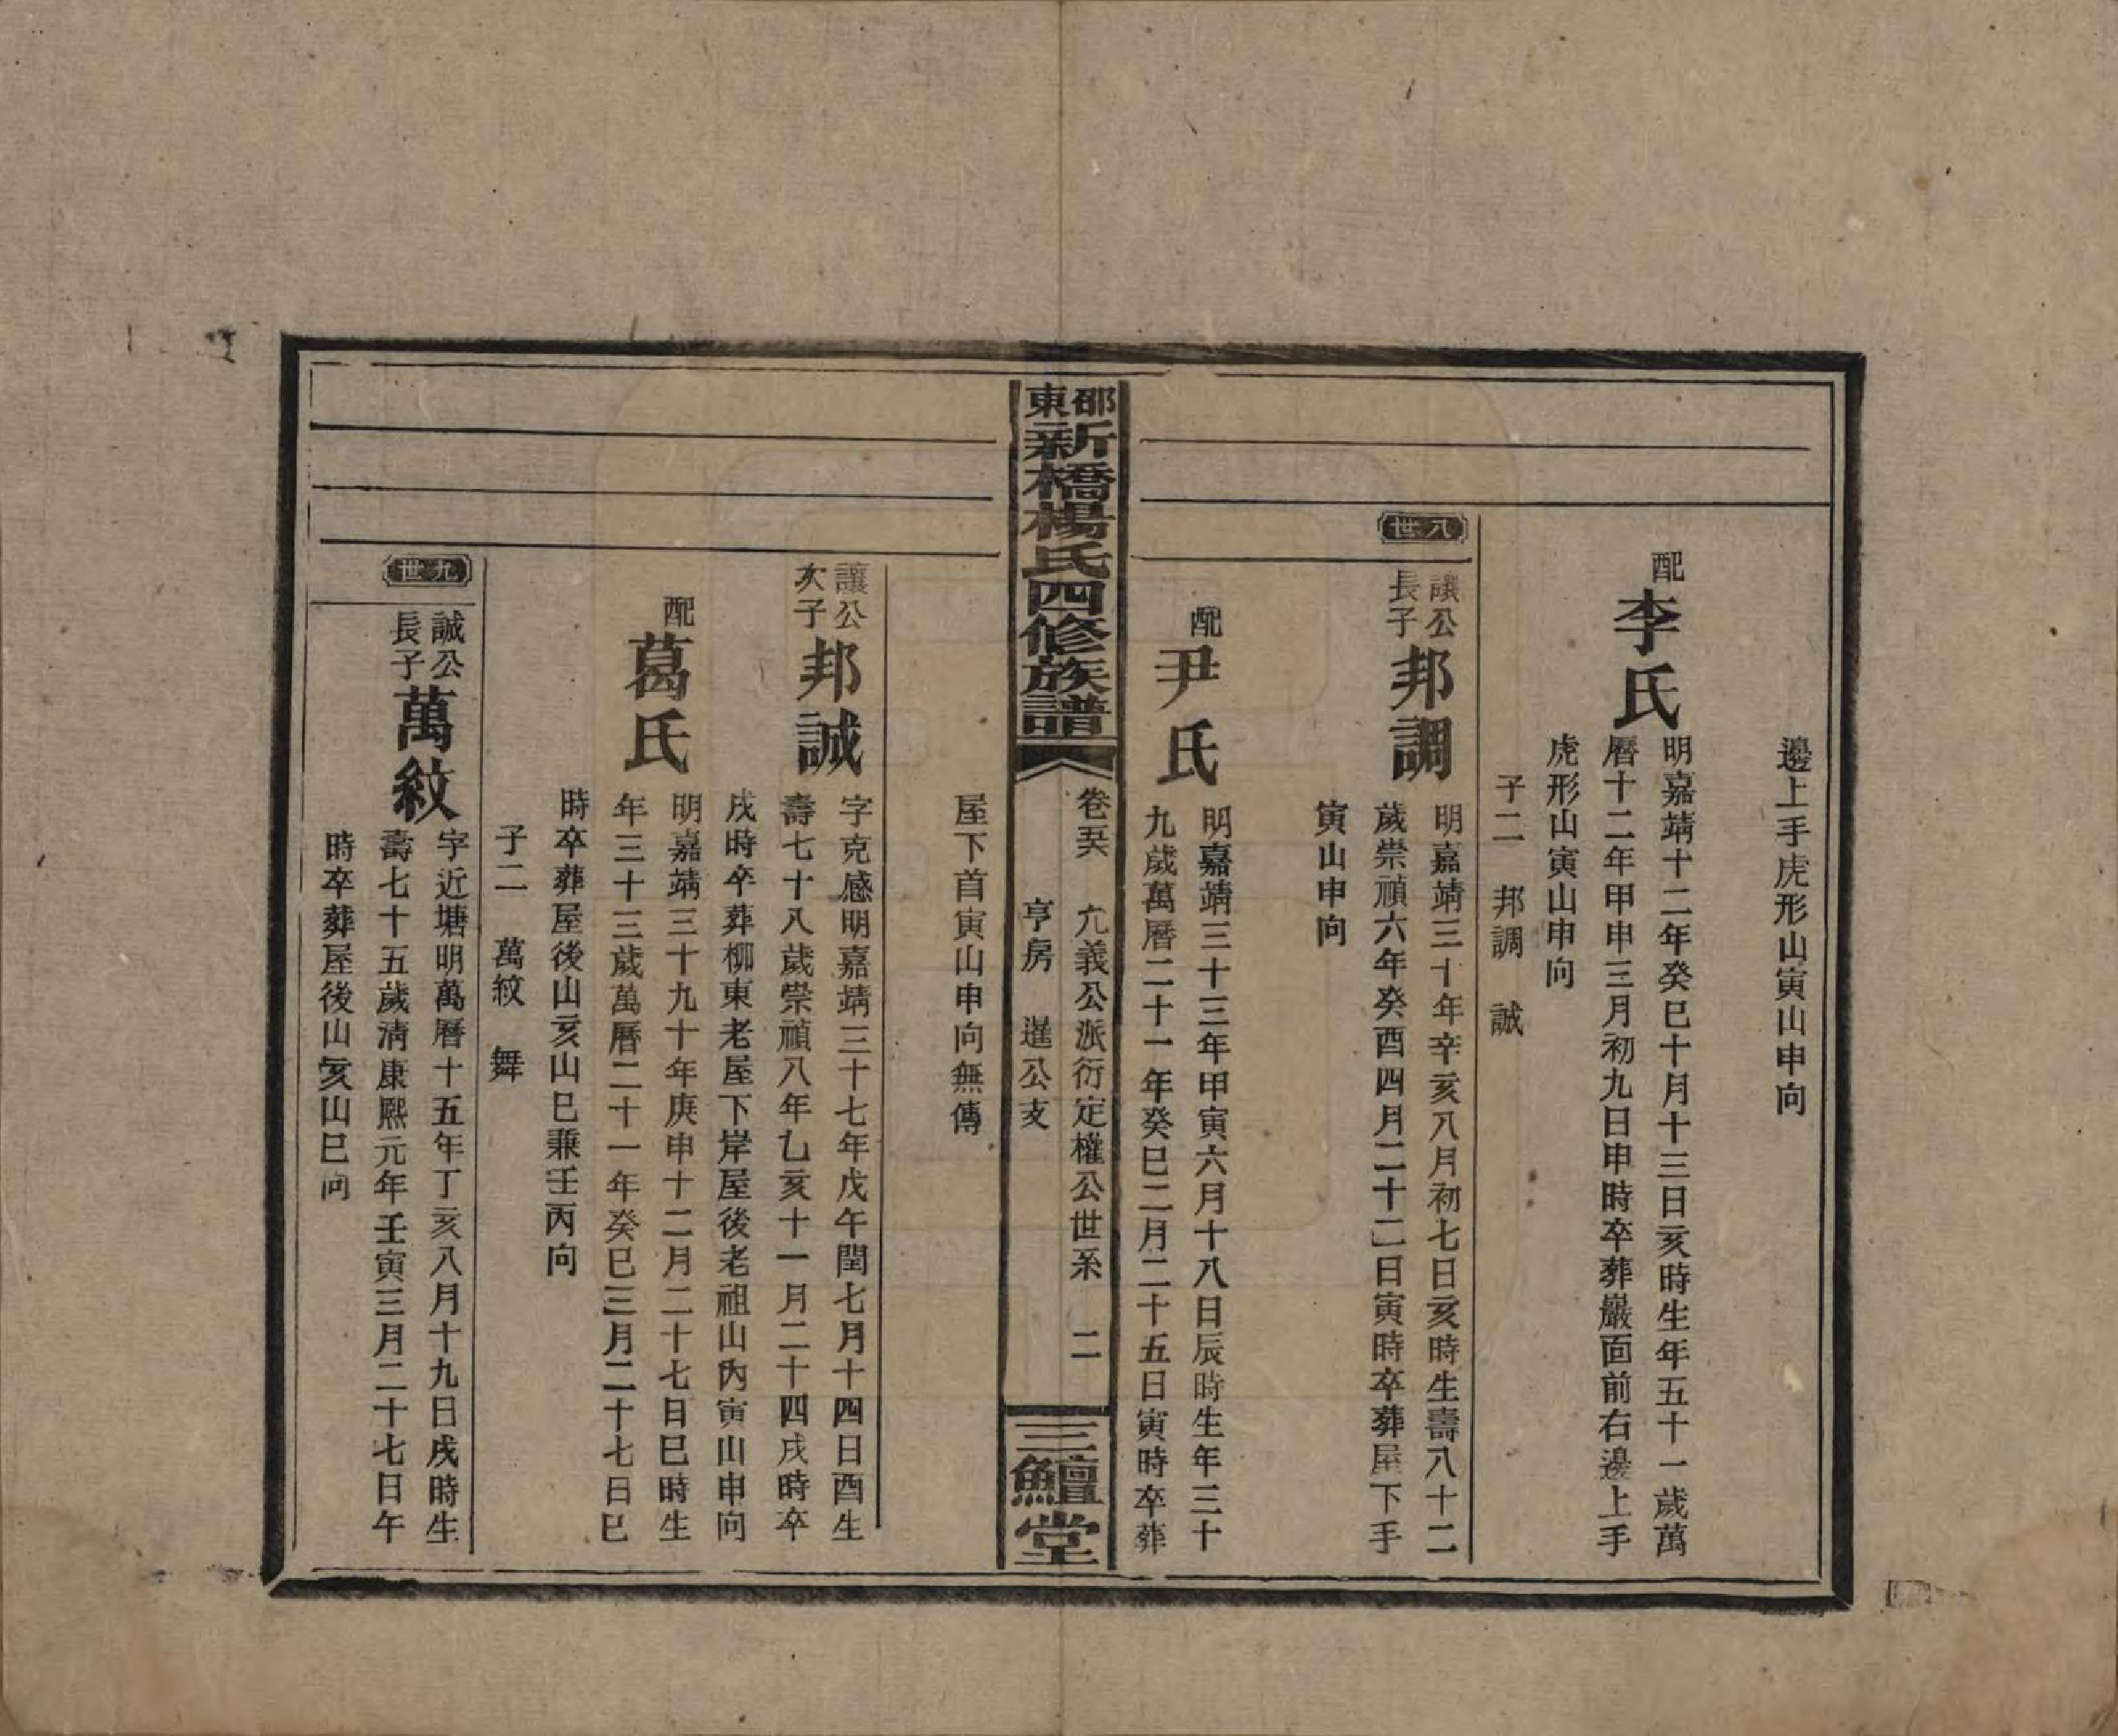 邊上手虎形山寅山申向
配
李氏
明嘉靖十二年癸巳十月十三日亥時生年五十一歲萬
曆十二年甲申三月初九日申時卒葬巖面前右邊上手
虎形山寅山申向
子二 邦調 誠
八世
讓公
長子
邦調
明嘉靖三十年辛亥八月初七日亥時生壽八十二
歲崇禎六年癸酉四月二十二日寅時卒葬屋下手
寅山申向
配
尹氏
明嘉靖三十三年甲寅六月十八日辰時生年三十
九歲萬曆二十一年癸巳二月二十五日寅時卒葬
邵東
新橋楊氏四修族譜
卷五 允義公派衍定權公世系 二
亨房 暹公支
三鱣堂
屋下首寅山申向無傳
讓公
次子
邦誠
字克感明嘉靖三十七年戊午閏七月十四日酉生
壽七十八歲崇禎八年乙亥十一月二十四戌時卒
戌時卒葬柳東老屋下岸屋後老祖山內寅山申向
配
葛氏
明嘉靖三十九十年庚申十二月二十七日巳時生
年三十三歲萬曆二十一年癸巳三月二十七日巳
時卒葬屋後山亥山巳兼壬丙向
子二 萬紋 舞
九世
誠公
長子
萬紋
字近塘明萬曆十五年丁亥八月十九日戌時生
壽七十五歲清康熙元年壬寅三月二十七日午
時卒葬屋後山亥山巳向